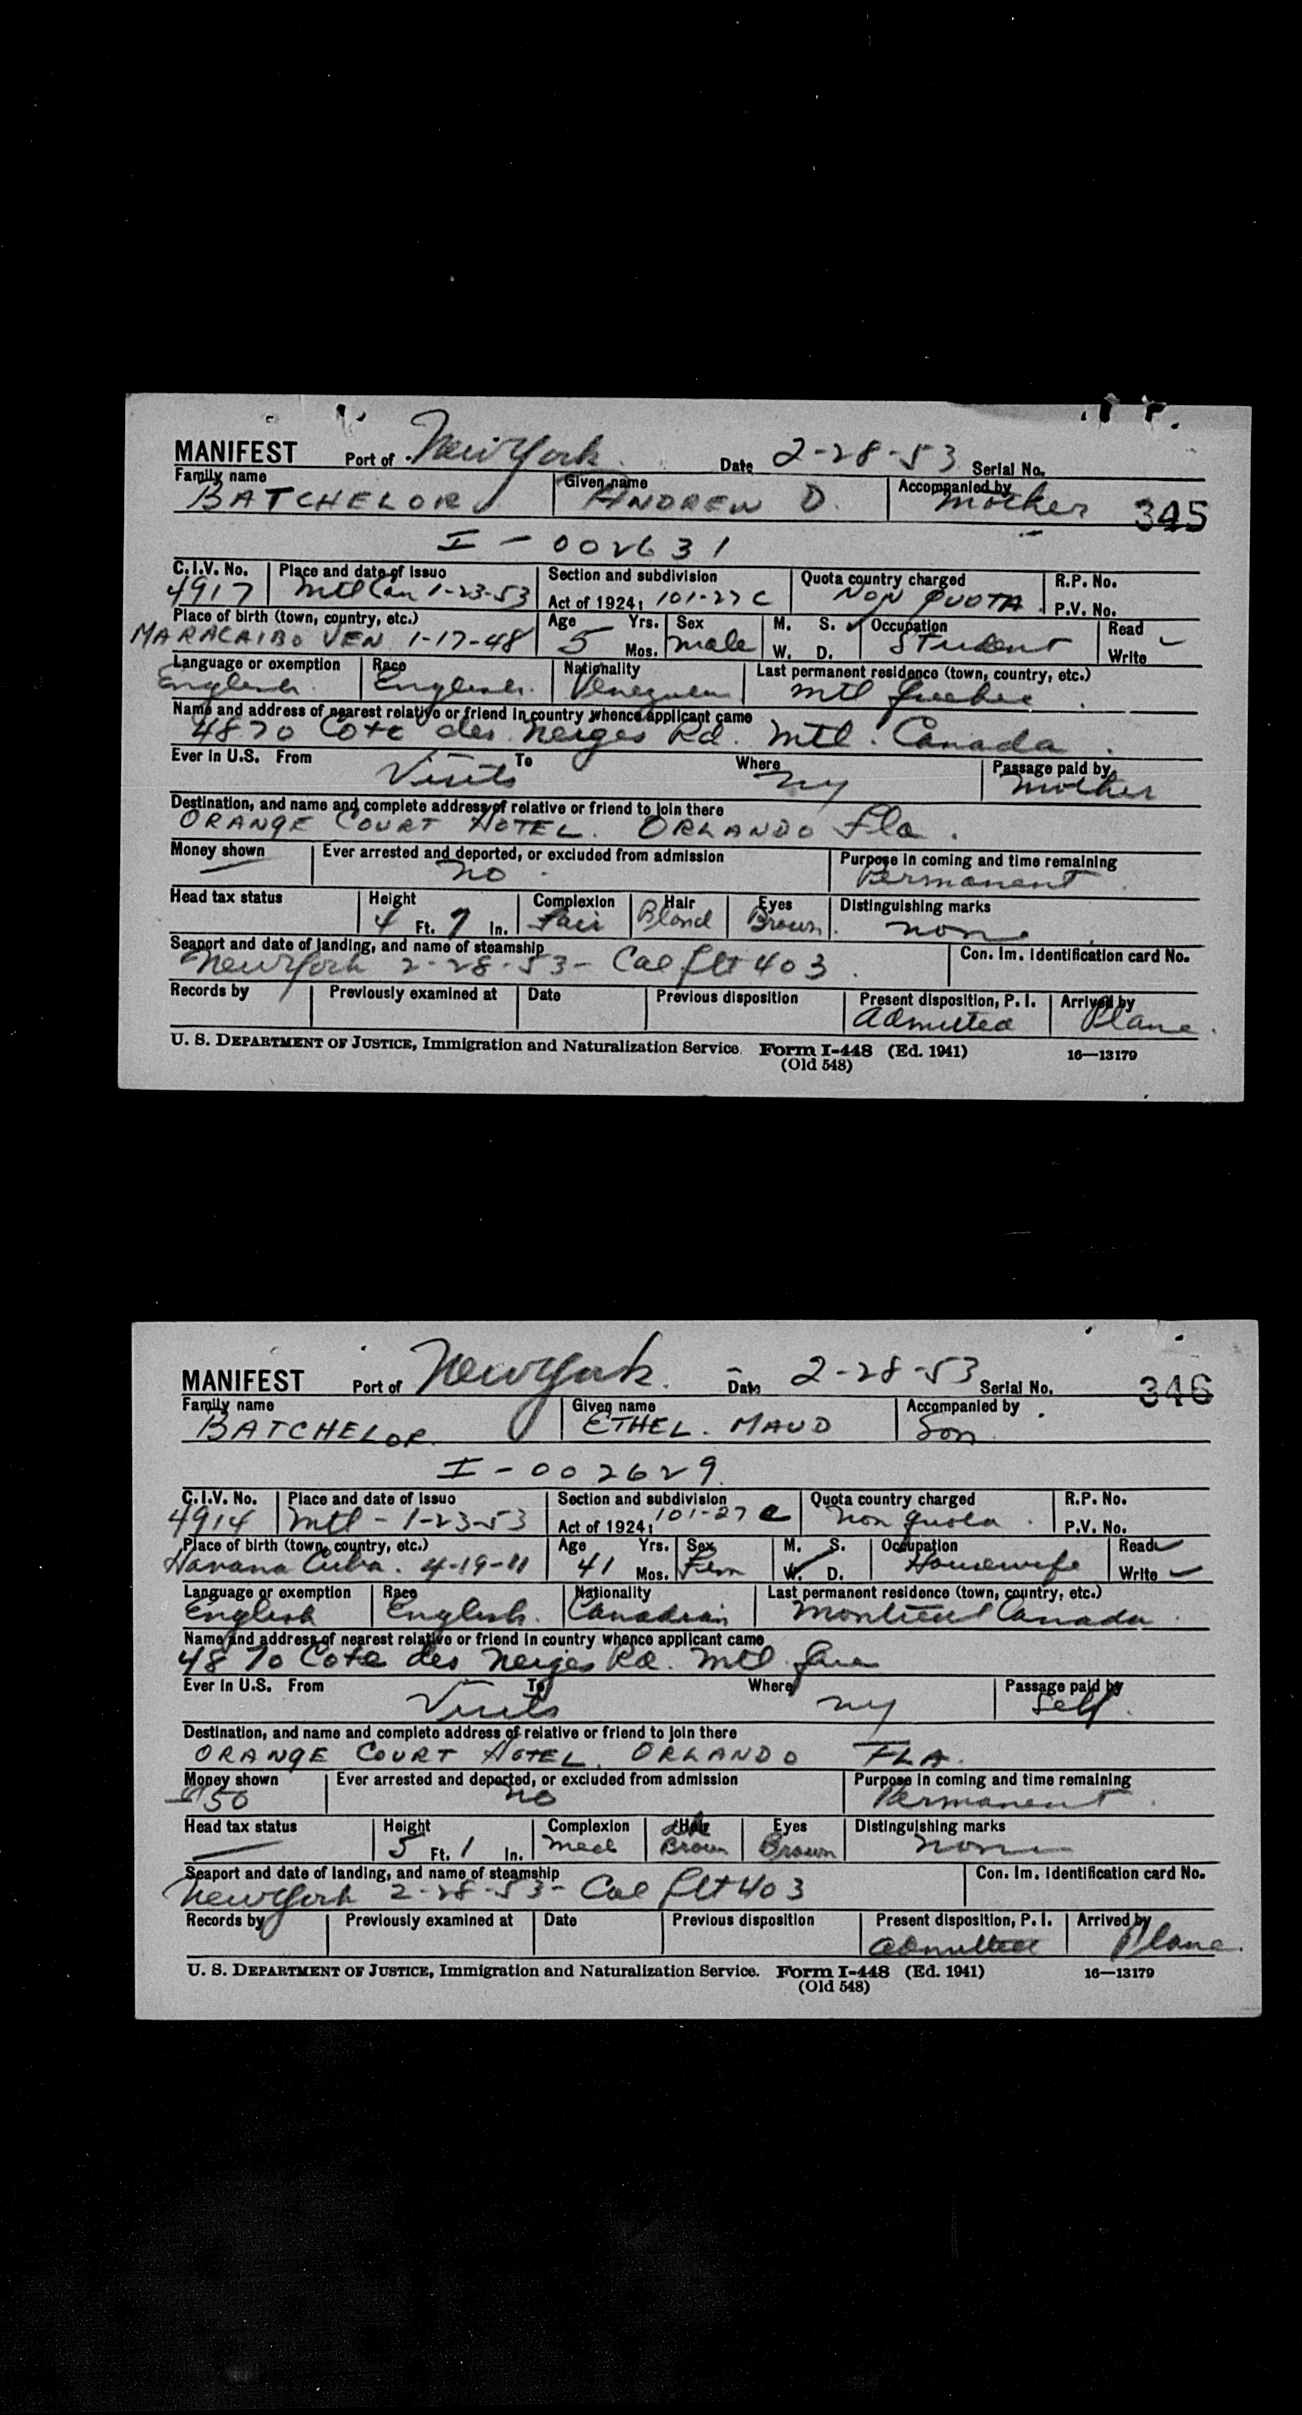 MANIFEST Port of New York Date 2-28-53 Serial No.
Family name Given name Accompanied by
BATCHELOR ANDREW D. Mother 345
I-002631
C.I.V. No. Place and date of issue Section and subdivision Quota country charged R.P. No.
4917 Mtl Can 1-23-53 Act of 1924: 101-27 C NON QUOTA P.V. No.
Place of birth (town, country, etc.) Age Yrs. Sex M. S. ✓ Occupation Read
MARACAIBO VEN 1-17-48 5 Mos. male W. D. Student Write
Language or exemption Race Nationality Last permanent residence (town, country, etc.)
English English Venezuelan Mtl Quebec
Name and address of nearest relative or friend in country whence applicant came
4870 Cote des Neiges Rd. Mtl. Canada
Ever in U.S. From To Where Passage paid by
Visits NY Mother
Destination, and name and complete address of relative or friend to join there
ORANGE COURT HOTEL. ORLANDO Fla.
Money shown Ever arrested and deported, or excluded from admission Purpose in coming and time remaining
— no Permanent
Head tax status Height Complexion Hair Eyes Distinguishing marks
4 Ft. 7 In. Fair Blond Brown none
Seaport and date of landing, and name of steamship Con. Im. Identification card No.
New York 2-28-53- Cal flt 403
Records by Previously examined at Date Previous disposition Present disposition, P. I. Arrived by
Admitted Plane
U. S. DEPARTMENT OF JUSTICE, Immigration and Naturalization Service. Form I-448 (Ed. 1941) 16—13179
(Old 548)
MANIFEST Port of New York Date 2-28-53 Serial No. 346
Family name Given name Accompanied by
BATCHELOR ETHEL. MAUD Son
I-002629
C.I.V. No. Place and date of issue Section and subdivision Quota country charged R.P. No.
4914 Mtl - 1-23-53 Act of 1924: 101-27 C Non Quota P.V. No.
Place of birth (town, country, etc.) Age Yrs. Sex M. S. Occupation Read ✓
Havana Cuba. 4-19-11 41 Mos. Fem W. ✓ D. Housewife Write ✓
Language or exemption Race Nationality Last permanent residence (town, country, etc.)
English English Canadian Montreal Canada
Name and address of nearest relative or friend in country whence applicant came
4870 Cote des Neiges Rd. Mtl
Ever in U.S. From To Where Passage paid by
Visits NY Self
Destination, and name and complete address of relative or friend to join there
ORANGE COURT HOTEL. ORLANDO FLA.
Money shown Ever arrested and deported, or excluded from admission Purpose in coming and time remaining
$50 no Permanent
Head tax status Height Complexion Hair Eyes Distinguishing marks
— 5 Ft. 1 In. Med dk Brown Brown none
Seaport and date of landing, and name of steamship Con. Im. Identification card No.
New York 2-28-53- Cal flt 403
Records by Previously examined at Date Previous disposition Present disposition, P. I. Arrived by
Admitted Plane.
U. S. DEPARTMENT OF JUSTICE, Immigration and Naturalization Service. Form I-448 (Ed. 1941) 16—13179
(Old 548)